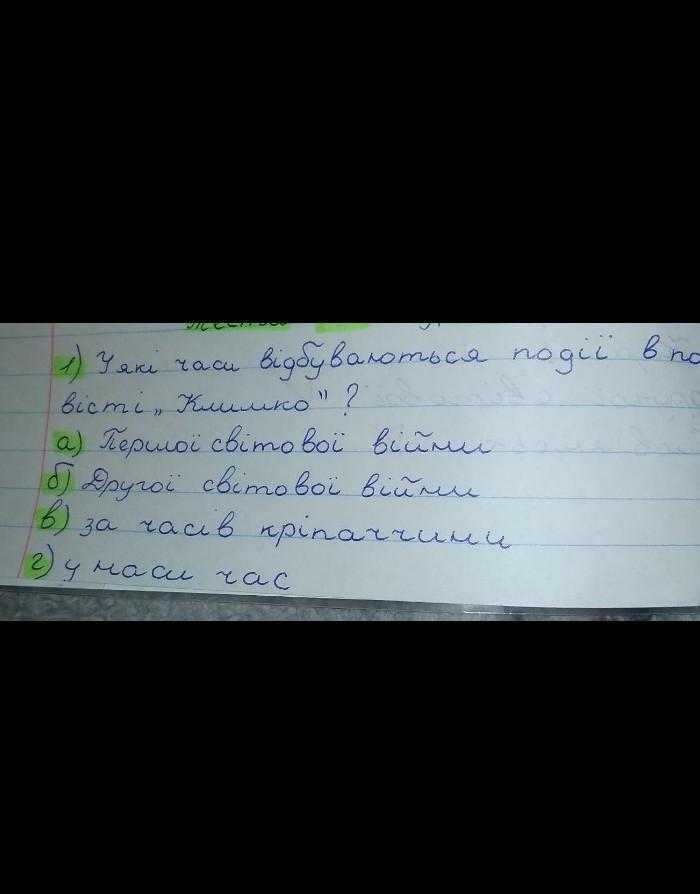 1) У які часи відбуваються події в по
вісті „Климко"?
а) Першої світової війни
б) Другої світової війни
в) за часів кріпаччини
г) у наш час